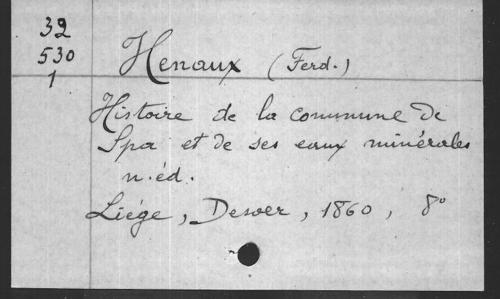 32
530
1
Henaux (Ferd.)
Histoire de la commune de
Spa et de ses eaux minérales
n. éd.
Liége, Desoer, 1860, 8°